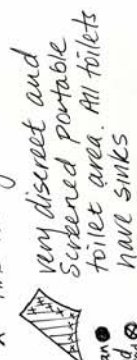 very discreet and
Screened Portable
toilet area. All toilets
have sinks